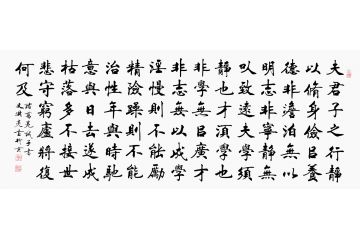 夫君子之行靜
以脩身儉以養
德非澹泊無以
明志非寧靜無
以致遠夫學須
靜也才須學也
非學無以廣才
非志無以成學
淫慢則不能勵
精險躁則不能
治性年與時馳
意與日去遂成
枯落多不接世
悲守窮廬將復
何及
諸葛亮誡子書